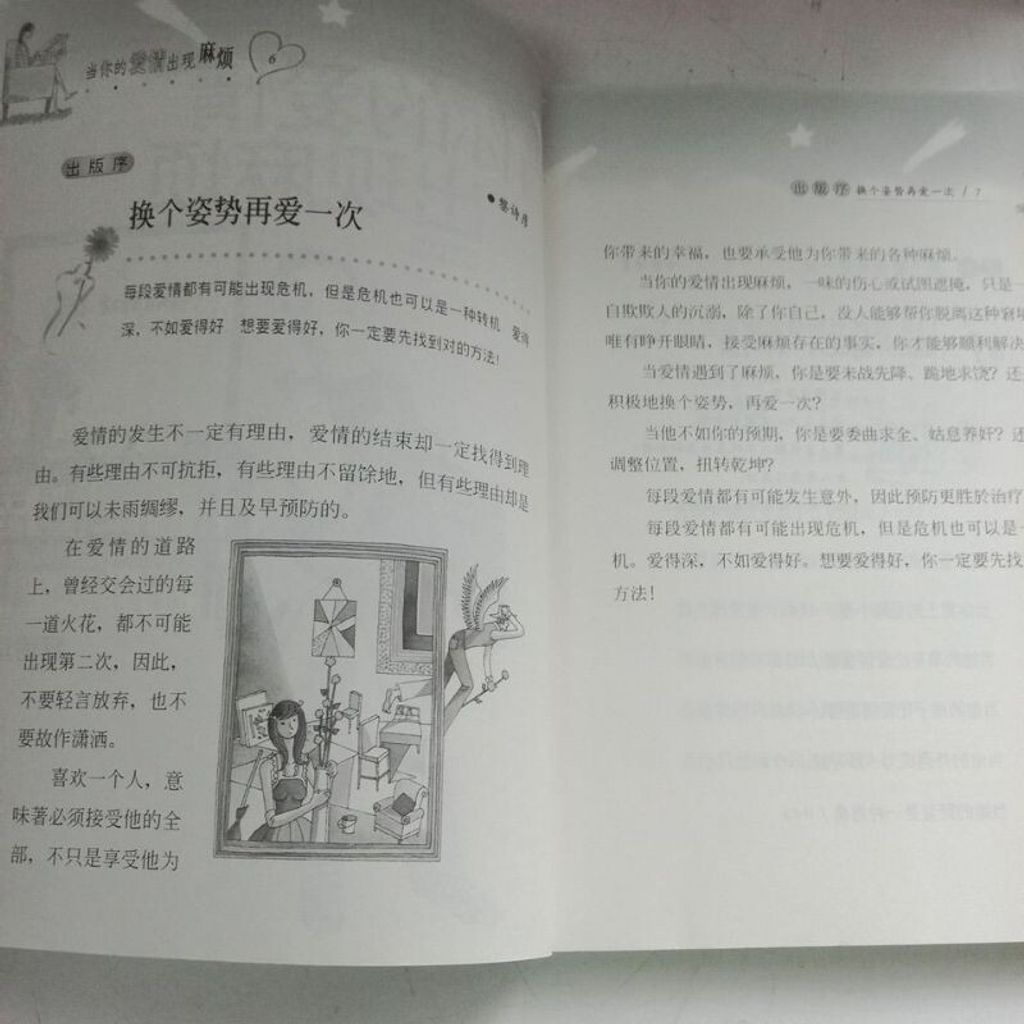 当你的爱情出现麻烦
6
出版序
换个姿势再爱一次
每段爱情都有可能出现危机，但是危机也可以是一种转机 爱得
深，不如爱得好 想要爱得好，你一定要先找到对的方法！
爱情的发生不一定有理由，爱情的结束却一定找得到理
由。有些理由不可抗拒，有些理由不留馀地，但有些理由却是
我们可以未雨绸缪，并且及早预防的。
在爱情的道路
上，曾经交会过的每
一道火花，都不可能
出现第二次，因此，
不要轻言放弃，也不
要故作潇洒。
喜欢一个人，意
味著必须接受他的全
部，不只是享受他为
出版序 换个姿势再爱一次 / 7
你带来的幸福，也要承受他为你带来的各种麻烦。
当你的爱情出现麻烦，一味的伤心或试图遮掩，只是一
自欺欺人的沉溺，除了你自己，没人能够帮你脱离这种窘境
唯有睁开眼睛，接受麻烦存在的事实，你才能够顺利解决
当爱情遇到了麻烦，你是要未战先降、跪地求饶？还
积极地换个姿势，再爱一次？
当他不如你的预期，你是要委曲求全、姑息养奸？还
调整位置，扭转乾坤？
每段爱情都有可能发生意外，因此预防更胜於治疗
每段爱情都有可能出现危机，但是危机也可以是一
机。爱得深，不如爱得好。想要爱得好，你一定要先找
方法！